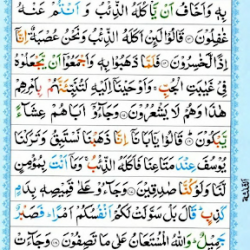 بِهٖ وَاَخَافُ اَنۡ يَّاۡكُلَهُ الذِّئۡبُ وَ اَنۡـتُمۡ عَنۡهُ
غٰفِلُوۡنَ‏ قَالُوۡا لَٮِٕنۡ اَكَلَهُ الذِّئۡبُ وَنَحۡنُ عُصۡبَةٌ اِنَّاۤ
اِذًا لَّخٰسِرُوۡنَ‏ فَلَمَّا ذَهَبُوۡا بِهٖ وَاَجۡمَعُوۡۤا اَنۡ يَّجۡعَلُوۡهُ
فِىۡ غَيٰبَتِ الۡجُبِّ‌ۚ وَاَوۡحَيۡنَاۤ اِلَيۡهِ لَـتُنَـبِّئَـنَّهُمۡ بِاَمۡرِهِمۡ
هٰذَا وَهُمۡ لَا يَشۡعُرُوۡنَ‏ وَجَآءُوۡۤ اَبَاهُمۡ عِشَآءً
يَّبۡكُوۡنَؕ‏ قَالُوۡا يٰۤاَبَانَاۤ اِنَّا ذَهَبۡنَا نَسۡتَبِقُ وَتَرَكۡنَا
يُوۡسُفَ عِنۡدَ مَتَاعِنَا فَاَكَلَهُ الذِّئۡبُ‌ۚ وَمَاۤ اَنۡتَ بِمُؤۡمِنٍ
لَّنَا وَلَوۡ كُنَّا صٰدِقِيۡنَ‏ وَجَآءُوۡ عَلٰى قَمِيۡـصِهٖ بِدَمٍ
كَذِبٍ‌ؕ قَالَ بَلۡ سَوَّلَتۡ لَـكُمۡ اَنۡفُسُكُمۡ اَمۡرًا‌ؕ فَصَبۡرٌ
جَمِيۡلٌ‌ؕ وَاللّٰهُ الۡمُسۡتَعَانُ عَلٰى مَا تَصِفُوۡنَ‏ وَجَآءَتۡ